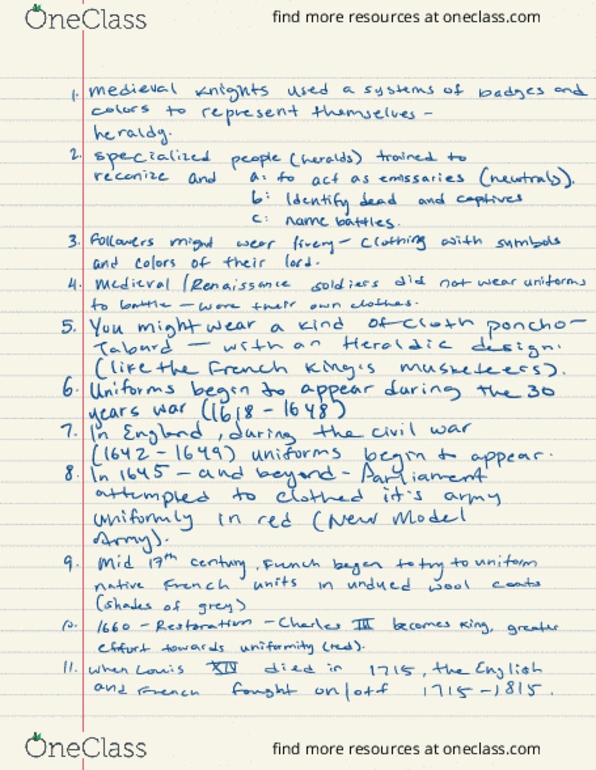 OneClass
find more resources at oneclass.com
1. medieval knights used a systems of badges and
colors to represent themselves -
heraldg.
2. specialized people (heralds) trained to
reconize and a: to act as emissaries (neutrals).
b: Identify dead and captives
c: name battles.
3. Followers might wear livery - clothing with symbols
and colors of their lord.
4. Medieval / Renaissance soldiers did not wear uniforms
to battle - wore their own clothes.
5. You might wear a kind of cloth poncho -
Taburd - with an Heraldic design.
(like the French king's musketeers).
6. Uniforms begin to appear during the 30
years war (1618 - 1648)
7. In England, during the civil war
(1642 - 1649) uniforms begin to appear.
8. In 1645 - and beyond - Parliament
attumpled to clothed it's army
uniformly in red (New Model
Army).
9. Mid 17th century, French began to try to uniform
native French units in undyed wool coats
(shades of grey)
10. 1660 - Restoration - Charles III becomes king, greater
effort towards uniformity (red).
11. When Louis XIV died in 1715, the English
and French fought on/off 1715 - 1815.
OneClass
find more resources at oneclass.com